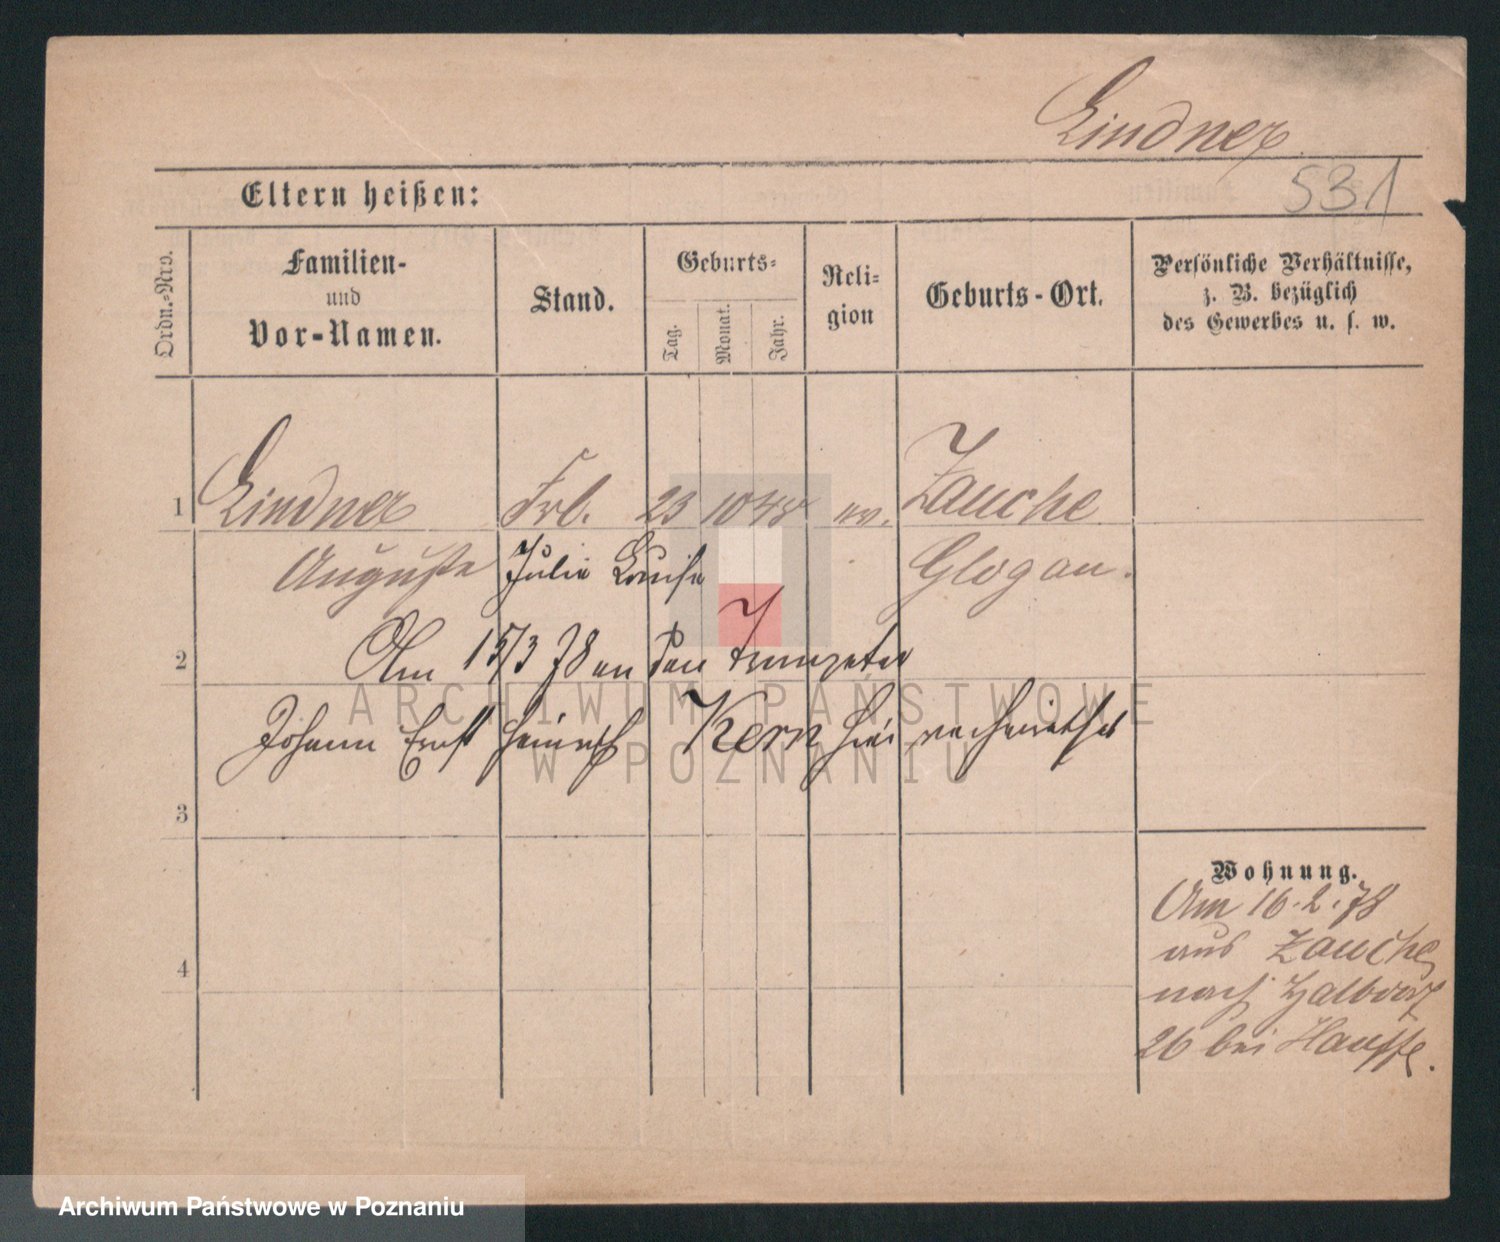 Lindner
531
Eltern heißen:
Ordn.-Nro.
Familien-
und
Vor-Namen.
Stand.
Geburts-
Tag.
Monat.
Jahr.
Reli-
gion
Geburts-Ort.
Persönliche Verhältnisse,
z. B. bezüglich
des Gewerbes u. s. w.
1 Lindner Frl. 23 10 48 ev. Zauche
Auguste Julie Louise Glogau.
2 Am 15/3 78 an den Trompeter
Johann Ernst Heinrich Kern hier verheirathet
3
Wohnung.
Am 16.2.78
aus Zauche
nach Halbdorf
26 bei Hauffe.
4
ARCHIWUM PAŃSTWOWE
W POZNANIU
Archiwum Państwowe w Poznaniu